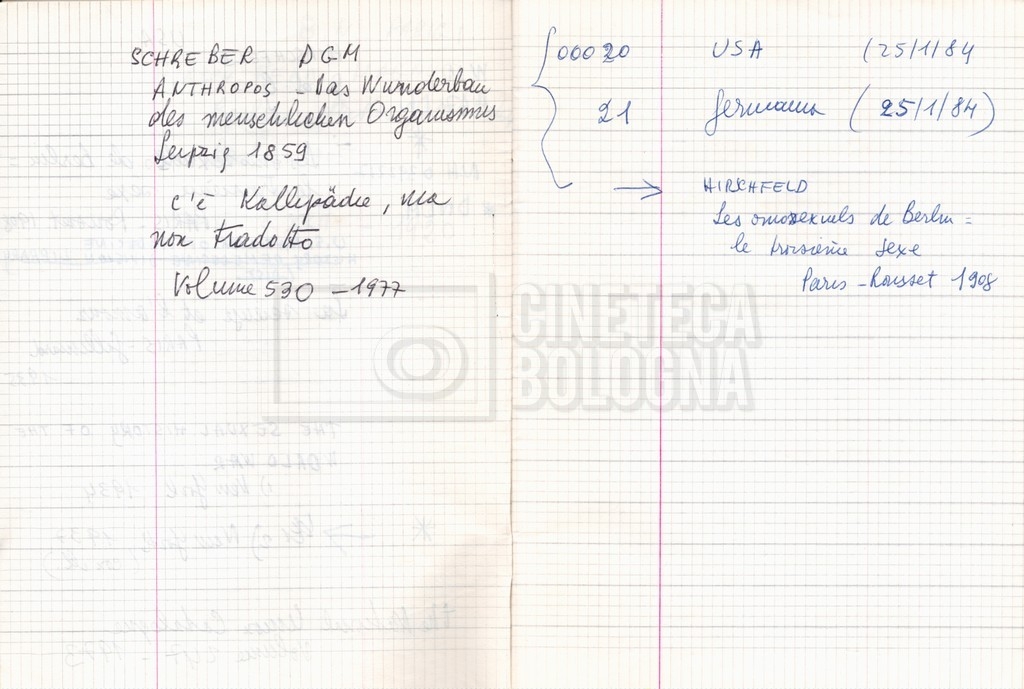 SCHREBER DGM
ANTHROPOS - Das Wunderbau
des menschlichen Organismus
Leipzig 1859
c'è Kallipädie, ma
non tradotto
Volume 530 - 1977
00020 USA (25/1/84
21 Germania (25/1/84)
→ HIRCHFELD
Les omosexuels de Berlin =
le troisième sexe
Paris - Rousset 1908
CINETECA
BOLOGNA
THE SEXUAL HISTORY OF THE
WORLD WAR